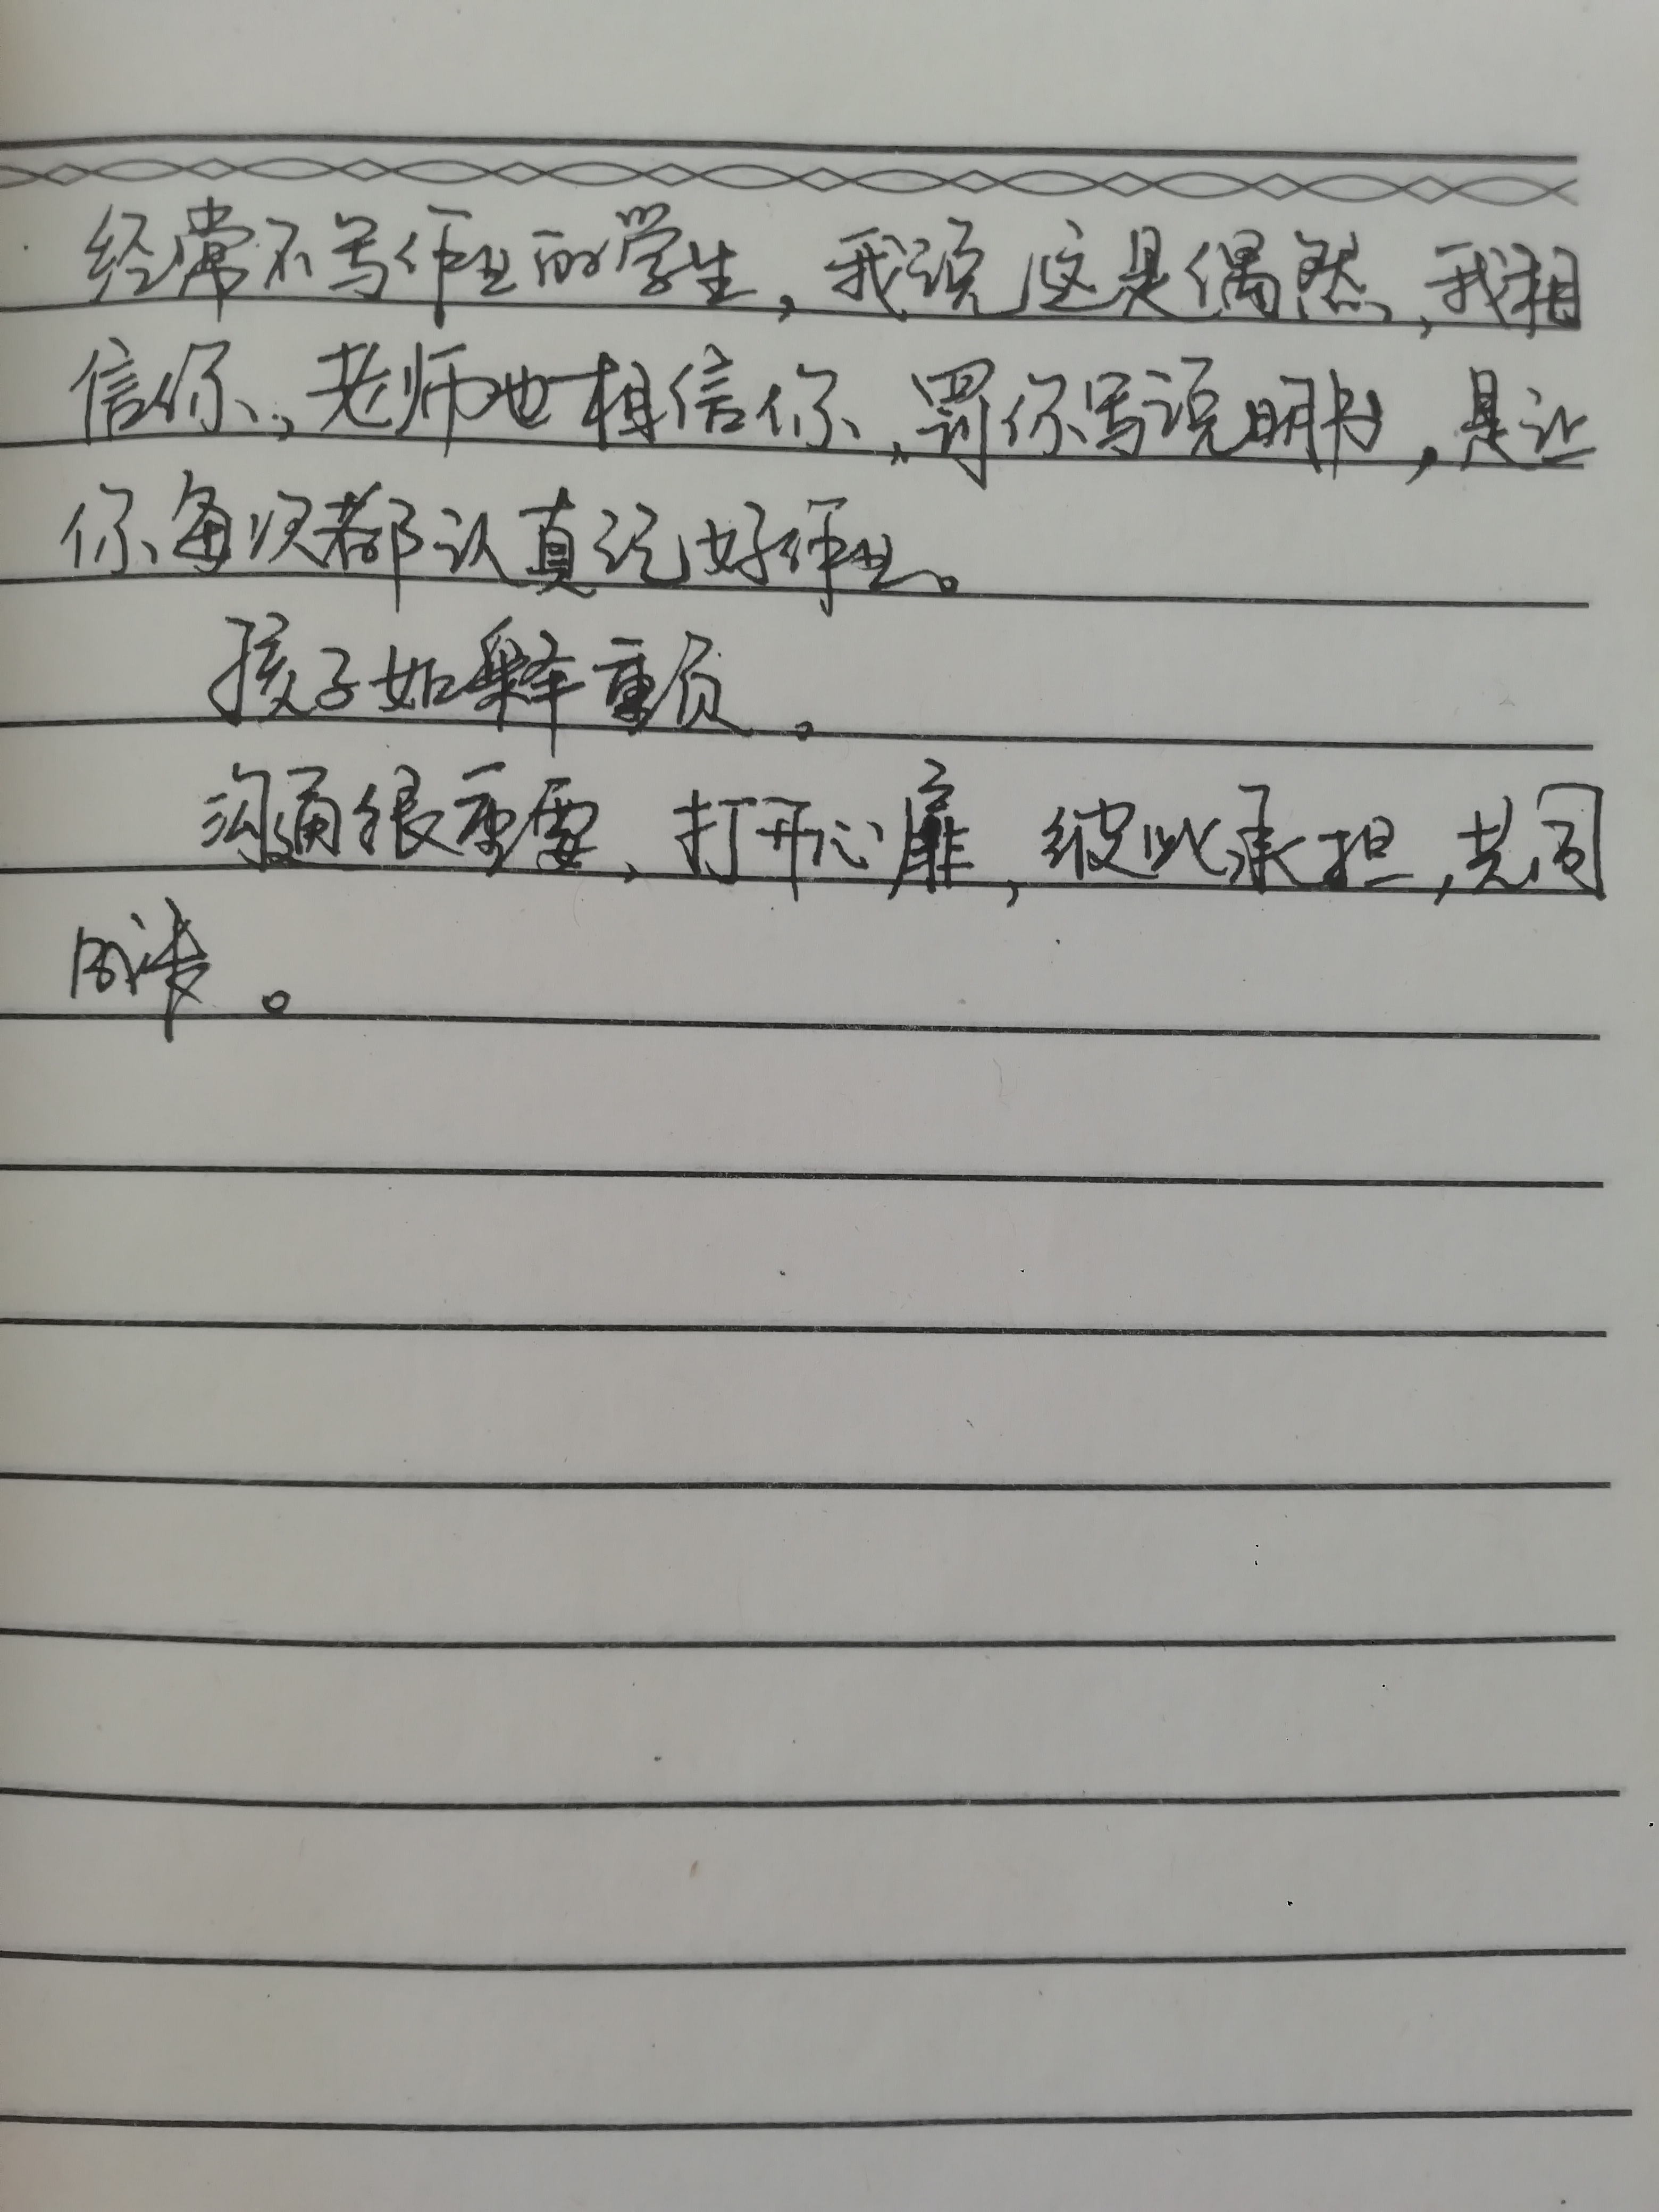 经常不写作业的学生，我说这是偶然，我相
信你，老师也相信你，罚你写说明书，是让
你每次都认真记好作业。
孩子如释重负。
沟通很重要，打开心扉，彼此承担，共同